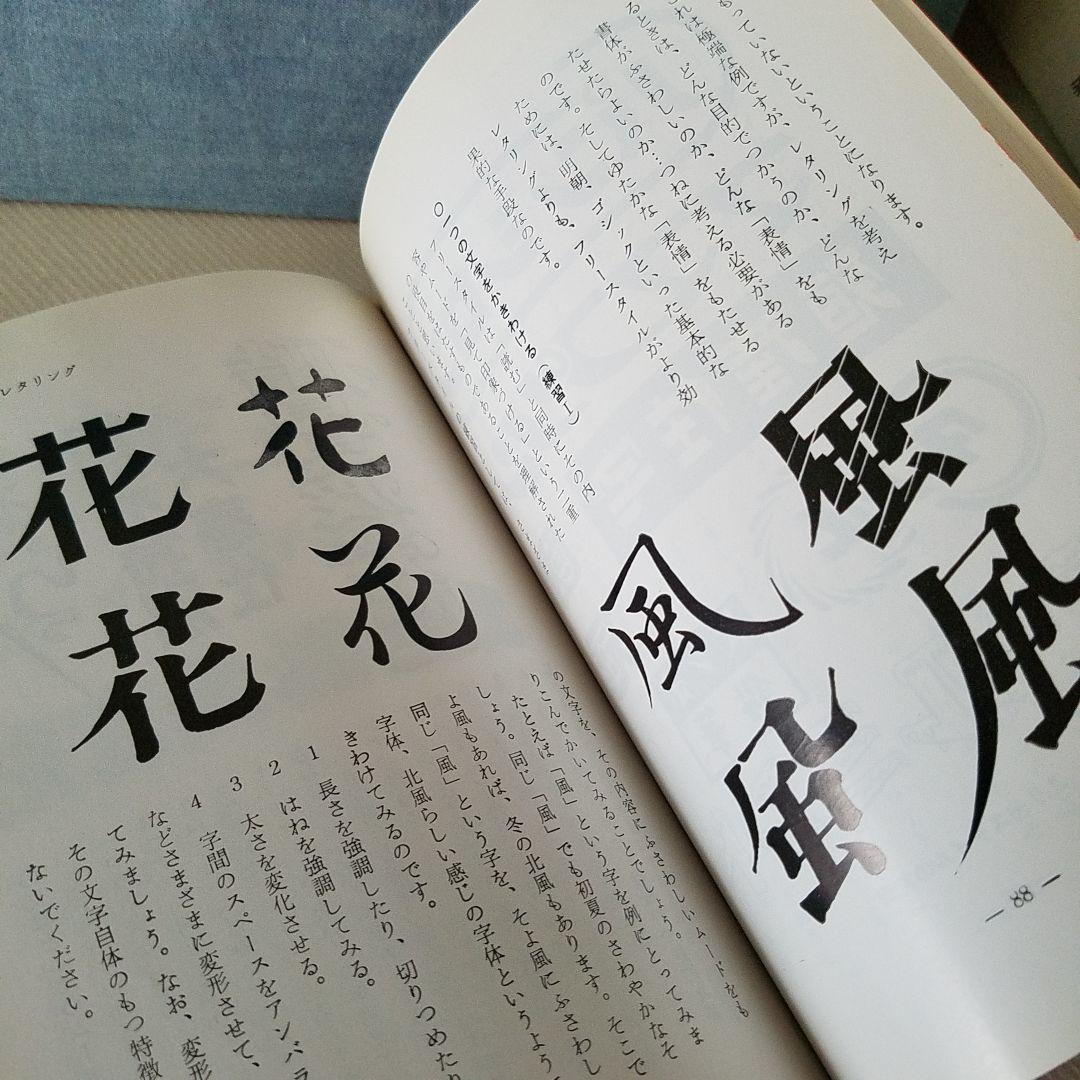 もっていないということになります。
これは極端な例ですが、レタリングを考え
るときは、どんな目的でつかうのか、どんな
書体がふさわしいのか、どんな「表情」をも
たせたらよいのか…つねに考える必要がある
のです。そしてゆたかな「表情」をもたせる
ためには、明朝、ゴシックといった基本的な
レタリングよりも、フリースタイルがより効
果的な手段なのです。
○一つの文字をかきわける(練習Ⅰ)
フリースタイルは「読む」と同時にその内
容やムードを「見て印象づける」という二重
の文字を、その内容にふさわしいムードをも
りこんでかいてみることでしょう。
たとえば「風」という字を例にとってみま
しょう。同じ「風」でも初夏のさわやかなそ
よ風もあれば、冬の北風もあります。そこで
同じ「風」という字を、そよ風にふさわし
字体、北風らしい感じの字体というよう
きわけてみるのです。
1 長さを強調したり、切りつめたり
2 はねを強調してみる。
3 太さを変化させる。
4 字間のスペースをアンバラ
などさまざまに変形させて、
てみましょう。なお、変形
その文字自体のもつ特徴
ないでください。
風
風
風
風
88
レタリング
花
花
花
花